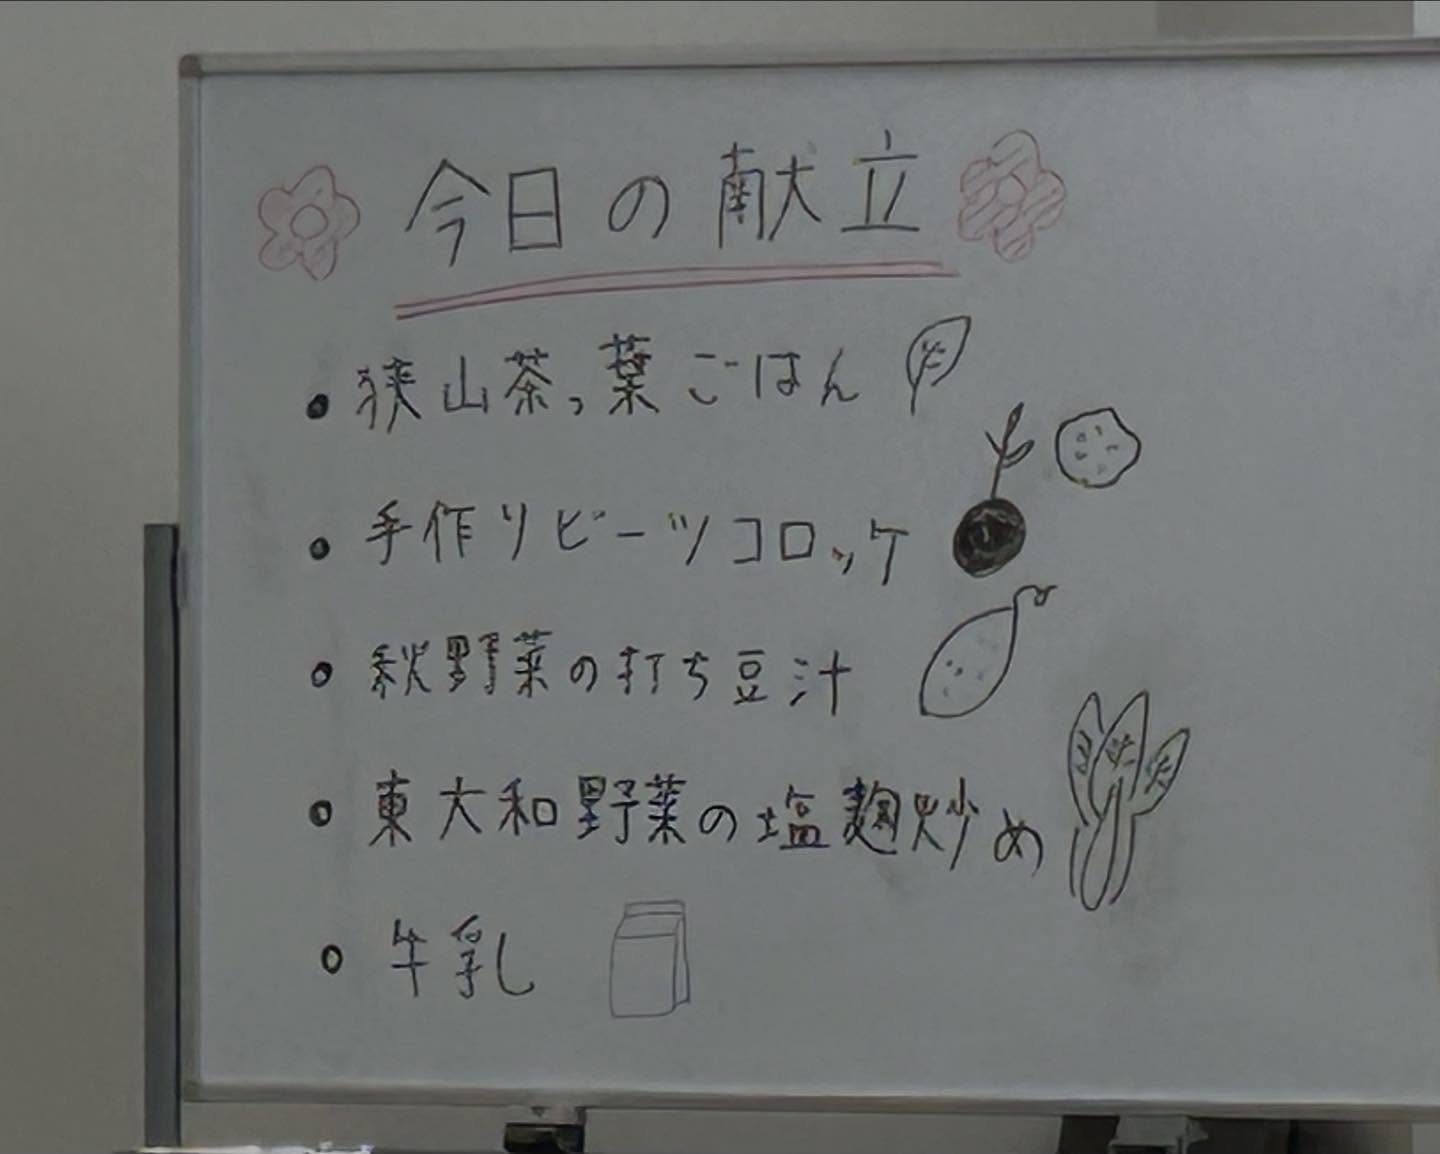 今日の献立
• 狭山茶っ葉ごはん
• 手作りビーツコロッケ
• 秋野菜の打ち豆汁
• 東大和野菜の塩麹炒め
• 牛乳